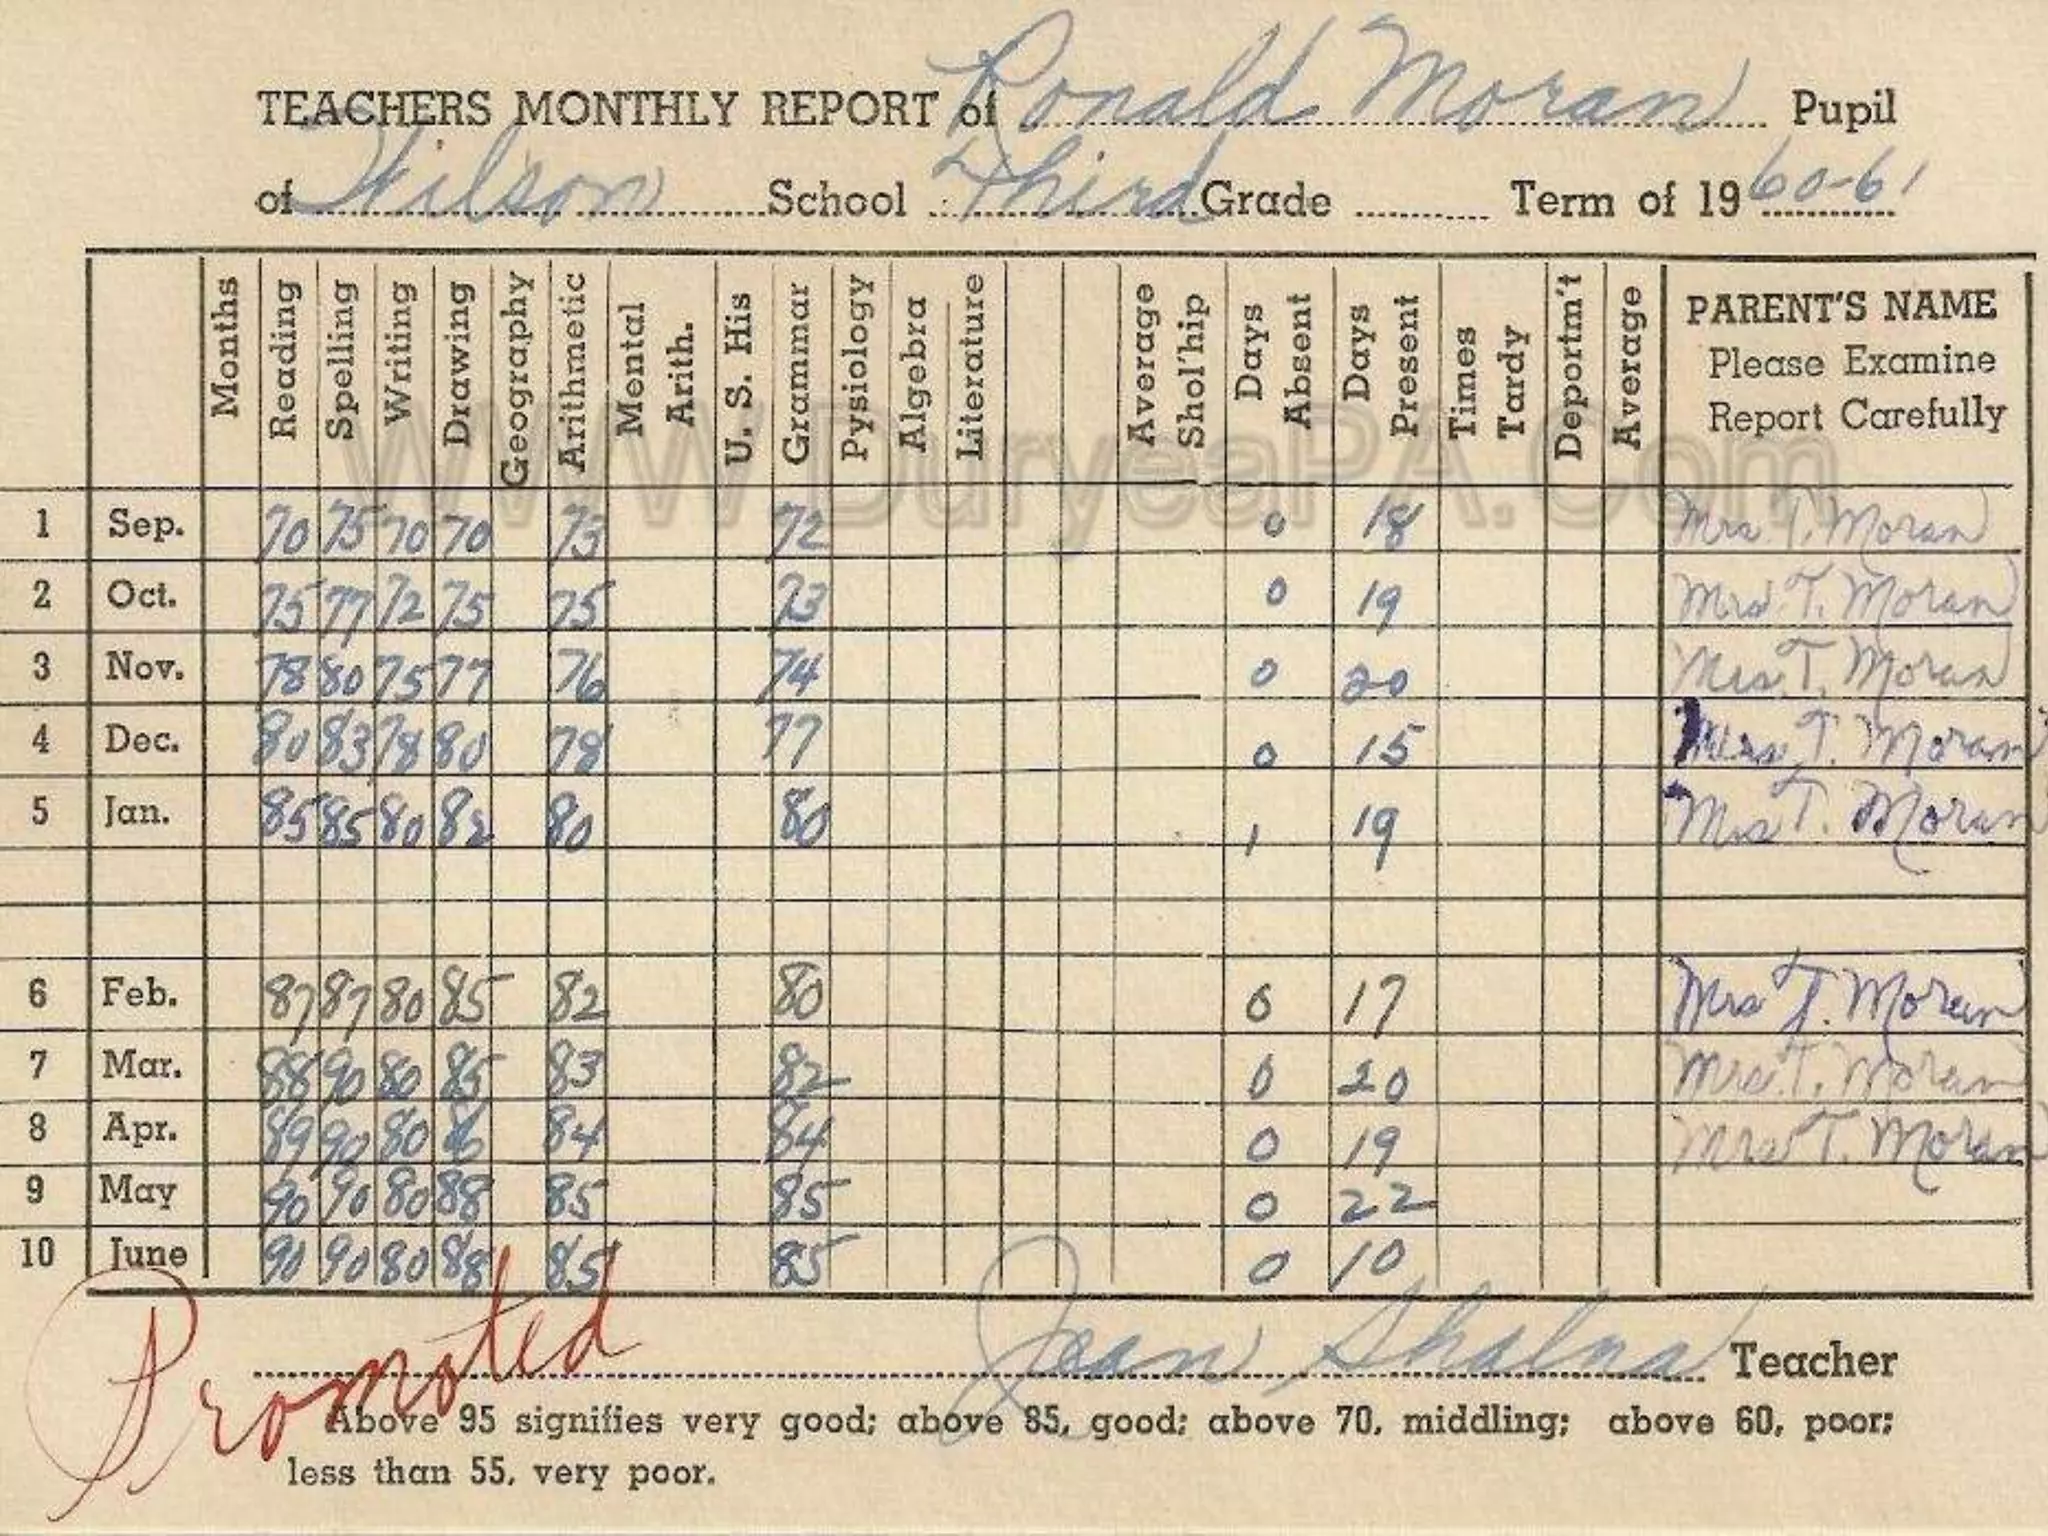 TEACHERS MONTHLY REPORT of Ronald Moran Pupil
of Wilson School Third Grade Term of 19 60-61
Months Reading Spelling Writing Drawing Geography Arithmetic Mental Arith. U. S. His Grammar Pysiology Algebra Literature Average Shol'hip Days Absent Days Present Times Tardy Deportm't Average PARENT'S NAME
Please Examine
Report Carefully
www.DuryeaPA.com
1 Sep. 70 75 70 70 73 72 0 18 Mrs. T. Moran
2 Oct. 75 77 72 75 75 73 0 19 Mrs. T. Moran
3 Nov. 78 80 75 77 76 74 0 20 Mrs. T. Moran
4 Dec. 80 83 78 80 78 77 0 15 Mrs. T. Moran
5 Jan. 85 85 80 82 80 80 1 19 Mrs T. Moran
6 Feb. 87 87 80 85 82 80 0 17 Mrs T. Moran
7 Mar. 88 90 80 85 83 82 0 20 Mrs. T. Moran
8 Apr. 89 90 80 86 84 84 0 19 Mrs T. Moran
9 May 90 90 80 88 85 85 0 22
10 June 90 90 80 88 85 85 0 10
Promoted
Jean Shalna Teacher
Above 95 signifies very good; above 85, good; above 70, middling; above 60, poor;
less than 55, very poor.